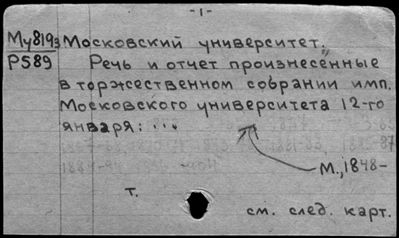 -1-
Му819з Московский университет.
Р589 Речь и отчет произнесенные
в торжественном собрании имп.
Московского университета 12-го
января: ...
М., 1848-
т.
см. след. карт.